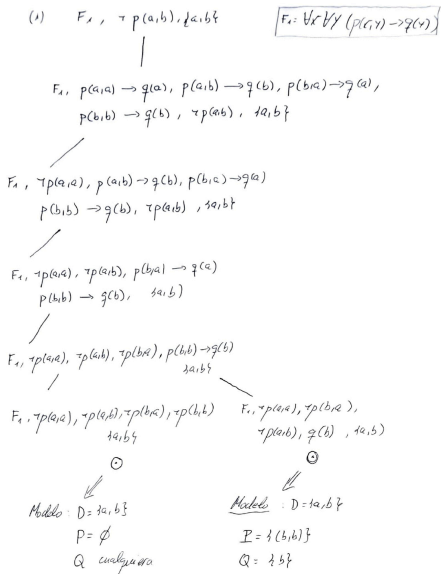 (1) F₁, ¬p(a,b), {a,b}
F₁: ∀x∀y (p(x,y) → q(y))
F₁, p(a,a) → q(a), p(a,b) → q(b), p(b,a) → q(a),
p(b,b) → q(b), ¬p(a,b), {a,b}
F₁, ¬p(a,a), p(a,b) → q(b), p(b,a) → q(a)
p(b,b) → q(b), ¬p(a,b), {a,b}
F₁, ¬p(a,a), ¬p(a,b), p(b,a) → q(a)
p(b,b) → q(b), {a,b}
F₁, ¬p(a,a), ¬p(a,b), ¬p(b,a), p(b,b) → q(b)
{a,b}
F₁, ¬p(a,a), ¬p(a,b), ¬p(b,a), ¬p(b,b)
{a,b}
F₁, ¬p(a,a), ¬p(b,a),
¬p(a,b), q(b), {a,b}
Modelo: D={a,b}
P=∅
Q cualquiera
Modelo: D={a,b}
P={(b,b)}
Q={b}